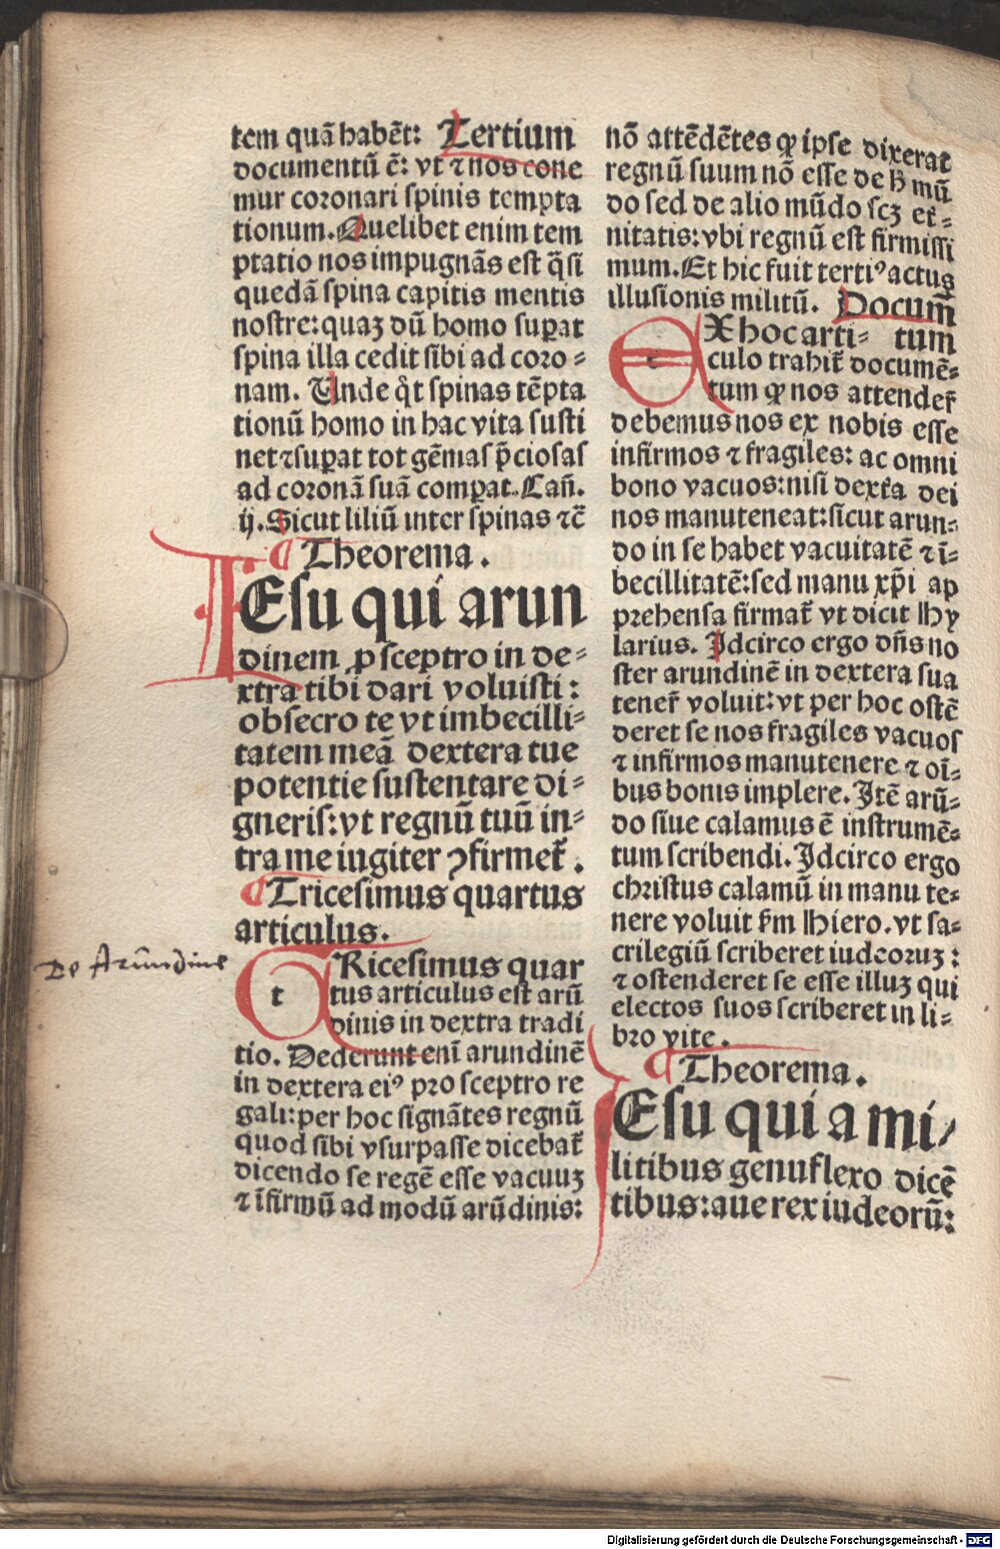 tem quā habēt: Tertium
documentū ē: vt ⁊ nos cone
mur coronari spinis tempta
tionum. Quelibet enim tem
ptatio nos impugnās est q̄si
quedā spina capitis mentis
nostre: quaꝫ dū homo suꝑat
spina illa cedit sibi ad coro-
nam. Unde q̄t spinas tēpta
tionū homo in hac vita susti
net ⁊ suꝑat tot gēmas p̄ciosas
ad coronā suā comꝑat. Cañ.
ij. Sicut liliū inter spinas ⁊c̄
¶ Theorema.
IEsu qui arun
dinem ꝓ sceptro in de-
xtra tibi dari voluisti:
obsecro te vt imbecilli-
tatem meā dextera tue
potentie sustentare di-
gneris: vt regnū tuū in-
tra me iugiter ꝯfirmet̄.
¶ Tricesimus quartus
articulus.
De Arundine
TRicesimus quar
tus articulus est arū
dinis in dextra tradi
tio. Dederunt eni arundinē
in dextera eiꝰ pro sceptro re
gali: per hoc signātes regnū
quod sibi vsurpasse dicebat̄
dicendo se regē esse vacuuꝫ
⁊ īfirmū ad modū arūdinis:
nō attēdētes ꝙ ipse dixerat
regnū suum nō esse de h̄ mū
do sed de alio mūdo scꝫ et̄-
nitatis: vbi regnū est firmissi
mum. Et hic fuit tertiꝰ actus
illusionis militū. Docum̄
EX hoc arti- tum
culo trahit̄ documē-
tum ꝙ nos attender̄
debemus nos ex nobis esse
infirmos ⁊ fragiles: ac omni
bono vacuos: nisi dext̄a dei
nos manuteneat: sicut arun-
do in se habet vacuitatē ⁊ ī-
becillitatē: sed manu xp̄i ap
prehensa firmat̄ vt dicit Hy
larius. Idcirco ergo dn̄s no
ster arundinē in dextera sua
tener̄ voluit: vt per hoc ostē
deret se nos fragiles vacuos
⁊ infirmos manutenere ⁊ oī-
bus bonis implere. Itē arū-
do siue calamus ē instrumē-
tum scribendi. Idcirco ergo
christus calamū in manu te-
nere voluit ẜm Hiero. vt sa-
crilegiū scriberet iudeoruꝫ:
⁊ ostenderet se esse illuꝫ qui
electos suos scriberet in li-
bro vite.
¶ Theorema.
IEsu qui a mi/
litibus genuflexo dicē
tibus: aue rex iudeorū:
Digitalisierung gefördert durch die Deutsche Forschungsgemeinschaft - DFG